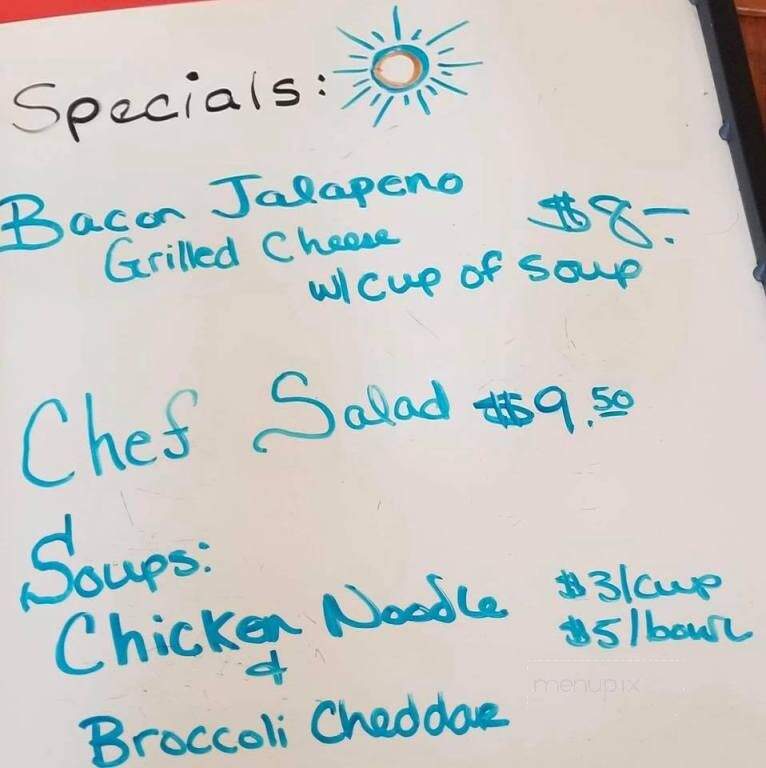 Specials:
Bacon Jalapeno
Grilled Cheese $8-.
w/ cup of soup
Chef Salad $9.50
Soups:
Chicken Noodle $3/cup
& $5/bowl
Broccoli Cheddar
menupix